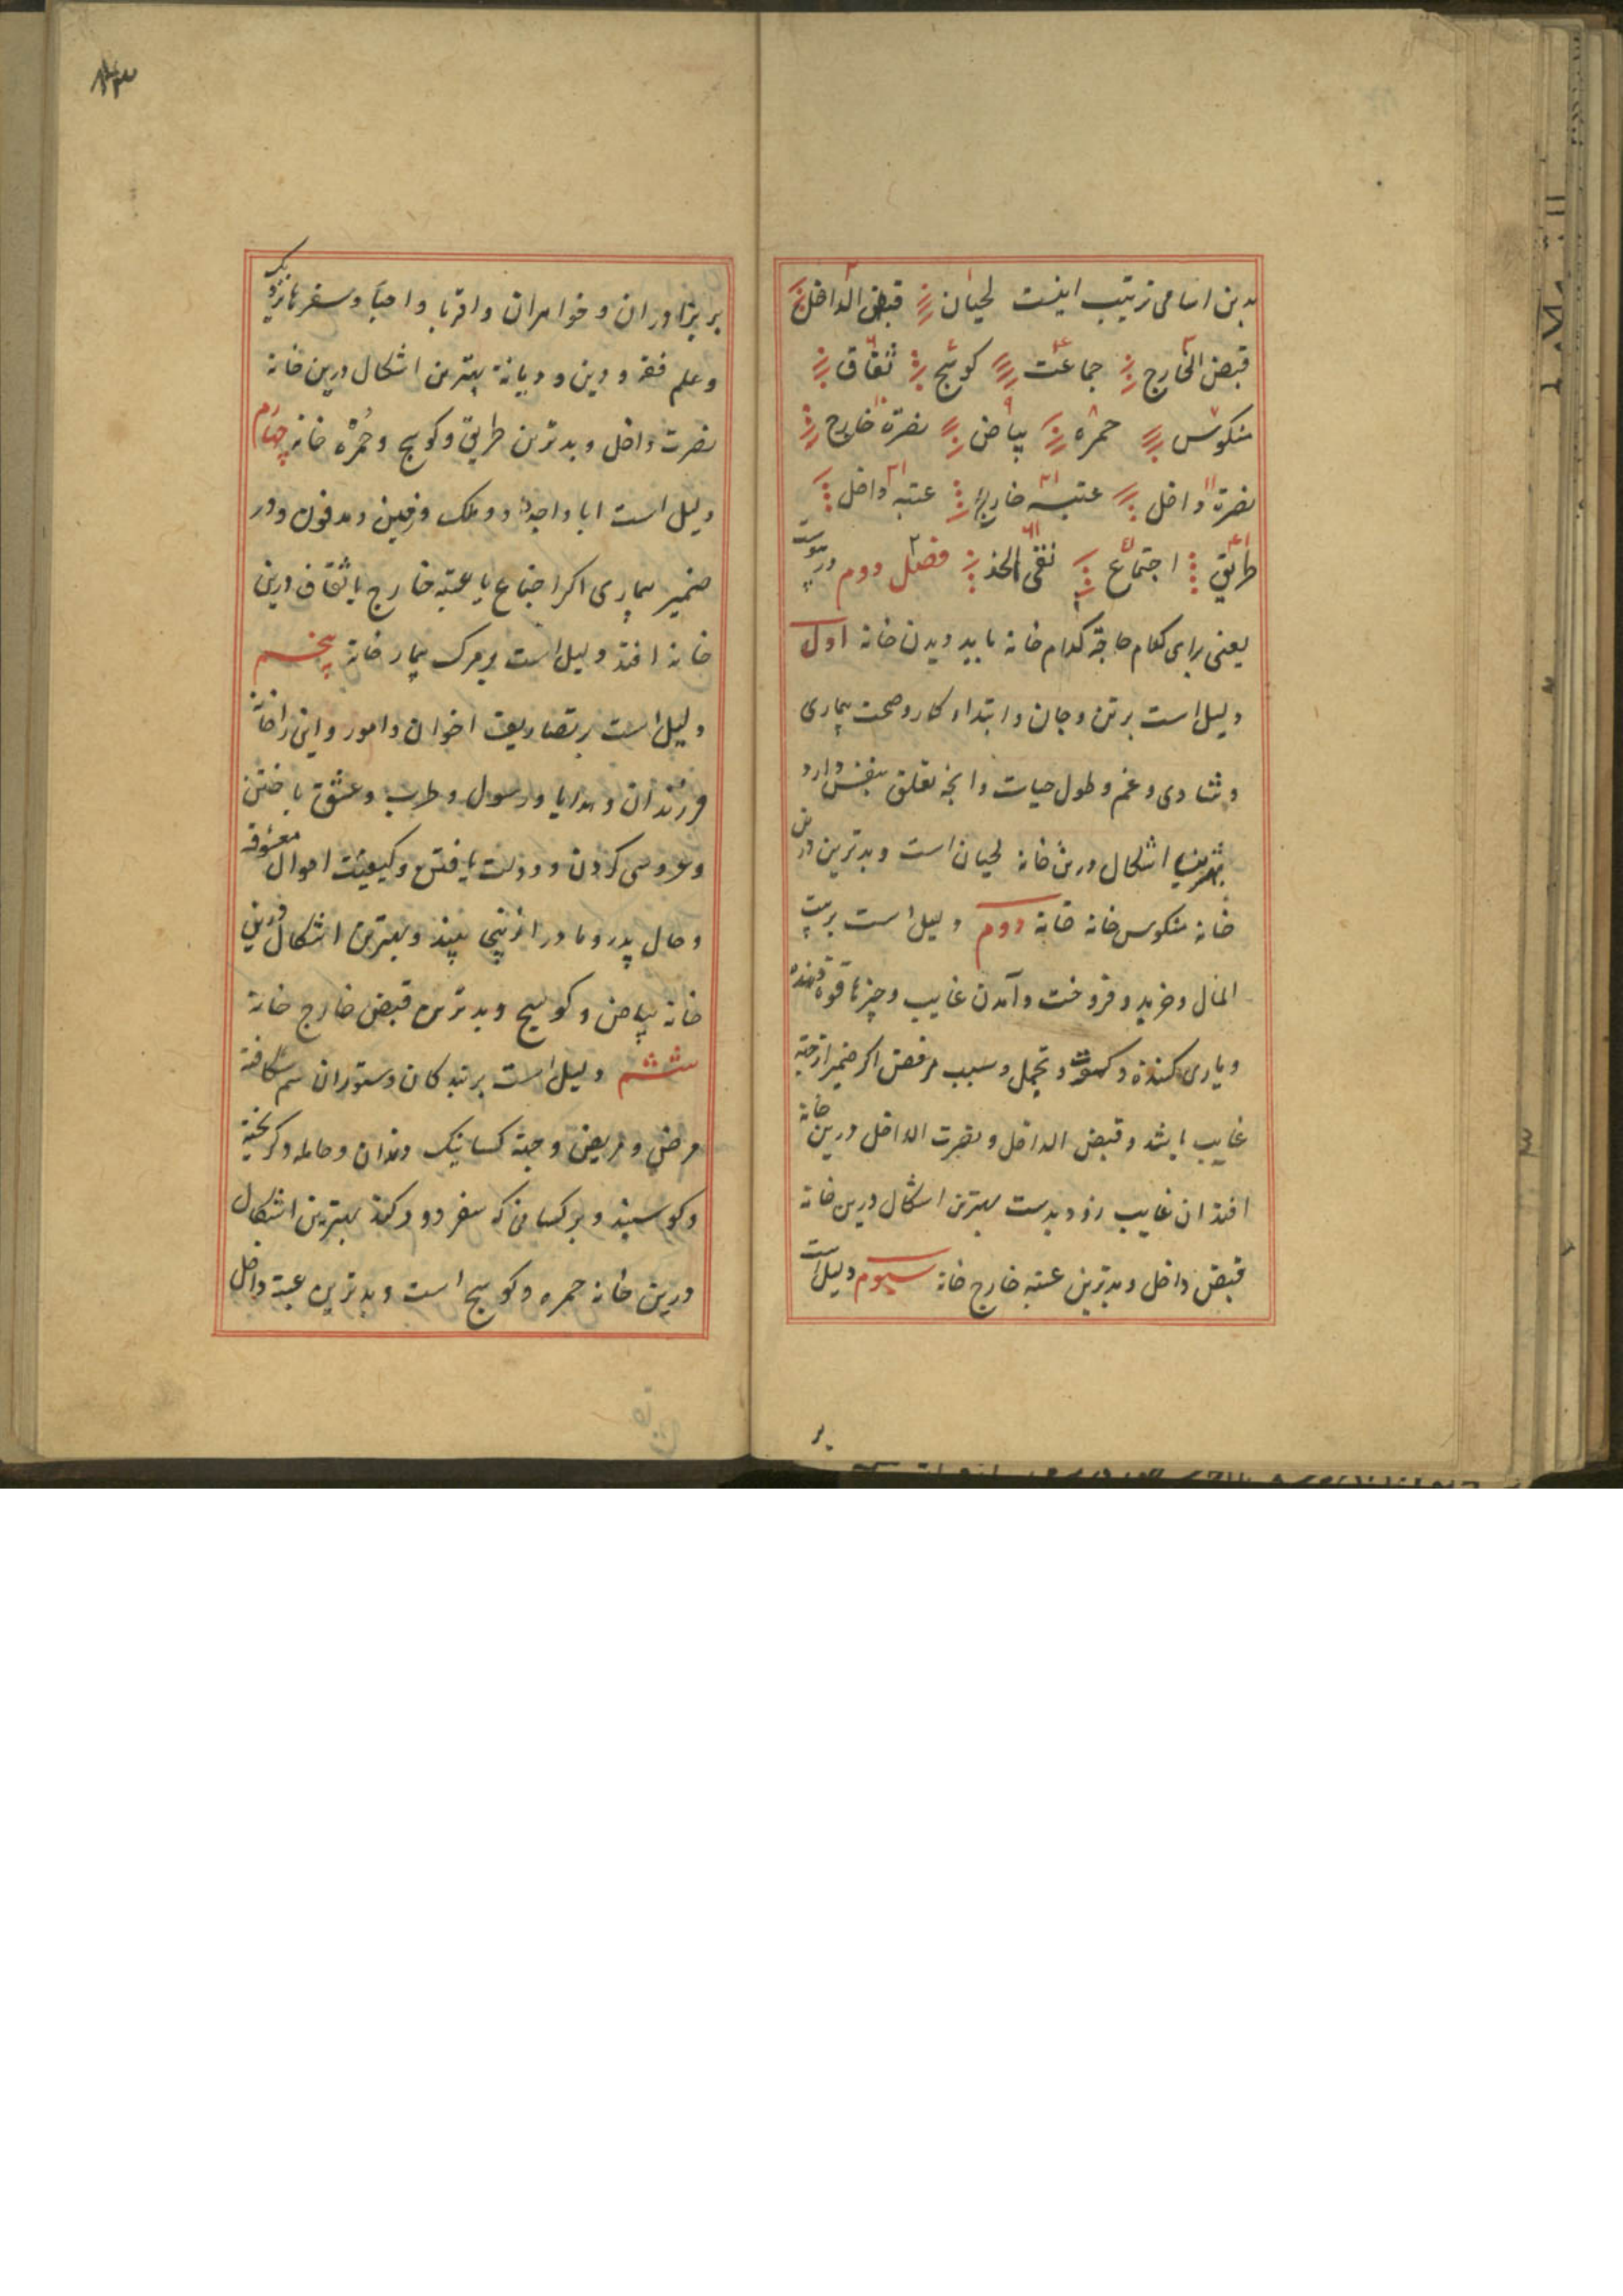 بدین اسامی ترتیب اینست لحیان قبض الداخل
قبض الخارج جماعت کوسج ثقاف
منکوس حمره بیاض نصرة خارج
نصرة داخل عتبه خارج عتبه داخل
طریق اجتماع نقی الخد فصل دوم در بیوت
یعنی برای کدام حاجة کدام خانه باید دیدن خانه اول
دلیل است بر تن و جان و ابتداء کار و صحت بیماری
و شادی و غم و طول حیات و انچه تعلق بنفس دارد
بهترین اشکال درین خانه لحیان است و بدترین درین
خانه منکوس خانه خانه دوم دلیل است بر بیت
المال و خرید و فروخت و آمدن غایب و چیزها قوة دهنده
و یاری کننده و کسوت و تجمل و سبب مرض اکر ضمیر از جهة
غایب باشد و قبض الداخل و نصرت الداخل درین خانه
افتد ان غایب زود بدست بهترین اشکال درین خانه
قبض داخل و بدترین عتبه خارج خانه سیوم دلیل است
بر
بر برادران و خواهران و اقربا و احبا و سفرها نزدیک
و علم فقه و دین و دیانة بهترین اشکال درین خانه
نصرت داخل و بدترین طریق و کوسج و حُمره خانه چهارم
دلیل است ابا و اجداد و ملک و زمین و مدفون و در
ضمیر بیماری اکر اجتماع یا عتبه خارج یا ثقاف درین
خانه افتد دلیل است بر مرک بیمار خانه پنجم
دلیل است بر تصاریف اخوان و امور و این را خانه
فرزندان و هدایا و رسول و طرب و عشق باختن
و عروسی کردن و دولت یافتن و کیفیت احوال معشوقه
و حال پدر و مادر ازینجا بیند و بهترین اشکال درین
خانه بیاض و کوسج و بدترین قبض خارج خانه
ششم دلیل است بر بندکان و ستوران سم شکافته
مرض و مریض و جهة کسانیک و حامله و کریخته
و کوسپند و بر کسانی که سفر دور کند بهترین اشکال
درین خانه حمره و کوسج است و بدترین عتبه داخل